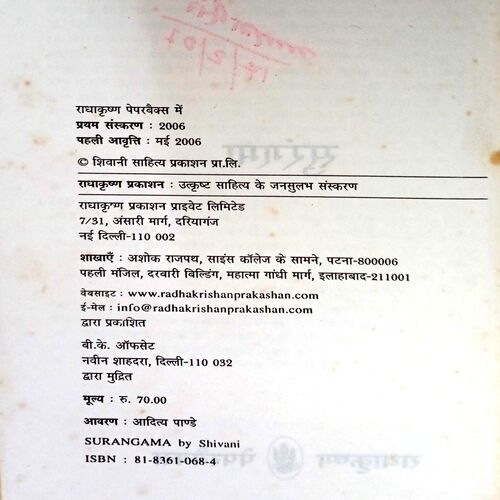 12/2/07
राधाकृष्ण पेपरबैक्स में
प्रथम संस्करण : 2006
पहली आवृत्ति : मई 2006
© शिवानी साहित्य प्रकाशन प्रा.लि.
राधाकृष्ण प्रकाशन : उत्कृष्ट साहित्य के जनसुलभ संस्करण
राधाकृष्ण प्रकाशन प्राइवेट लिमिटेड
7/31, अंसारी मार्ग, दरियागंज
नई दिल्ली-110 002
शाखाएँ : अशोक राजपथ, साइंस कॉलेज के सामने, पटना-800006
पहली मंजिल, दरबारी बिल्डिंग, महात्मा गांधी मार्ग, इलाहाबाद-211001
वेबसाइट : www.radhakrishanprakashan.com
ई-मेल : info@radhakrishanprakashan.com
द्वारा प्रकाशित
बी.के. ऑफसेट
नवीन शाहदरा, दिल्ली-110 032
द्वारा मुद्रित
मूल्य : रु. 70.00
आवरण : आदित्य पाण्डे
SURANGAMA by Shivani
ISBN : 81-8361-068-4